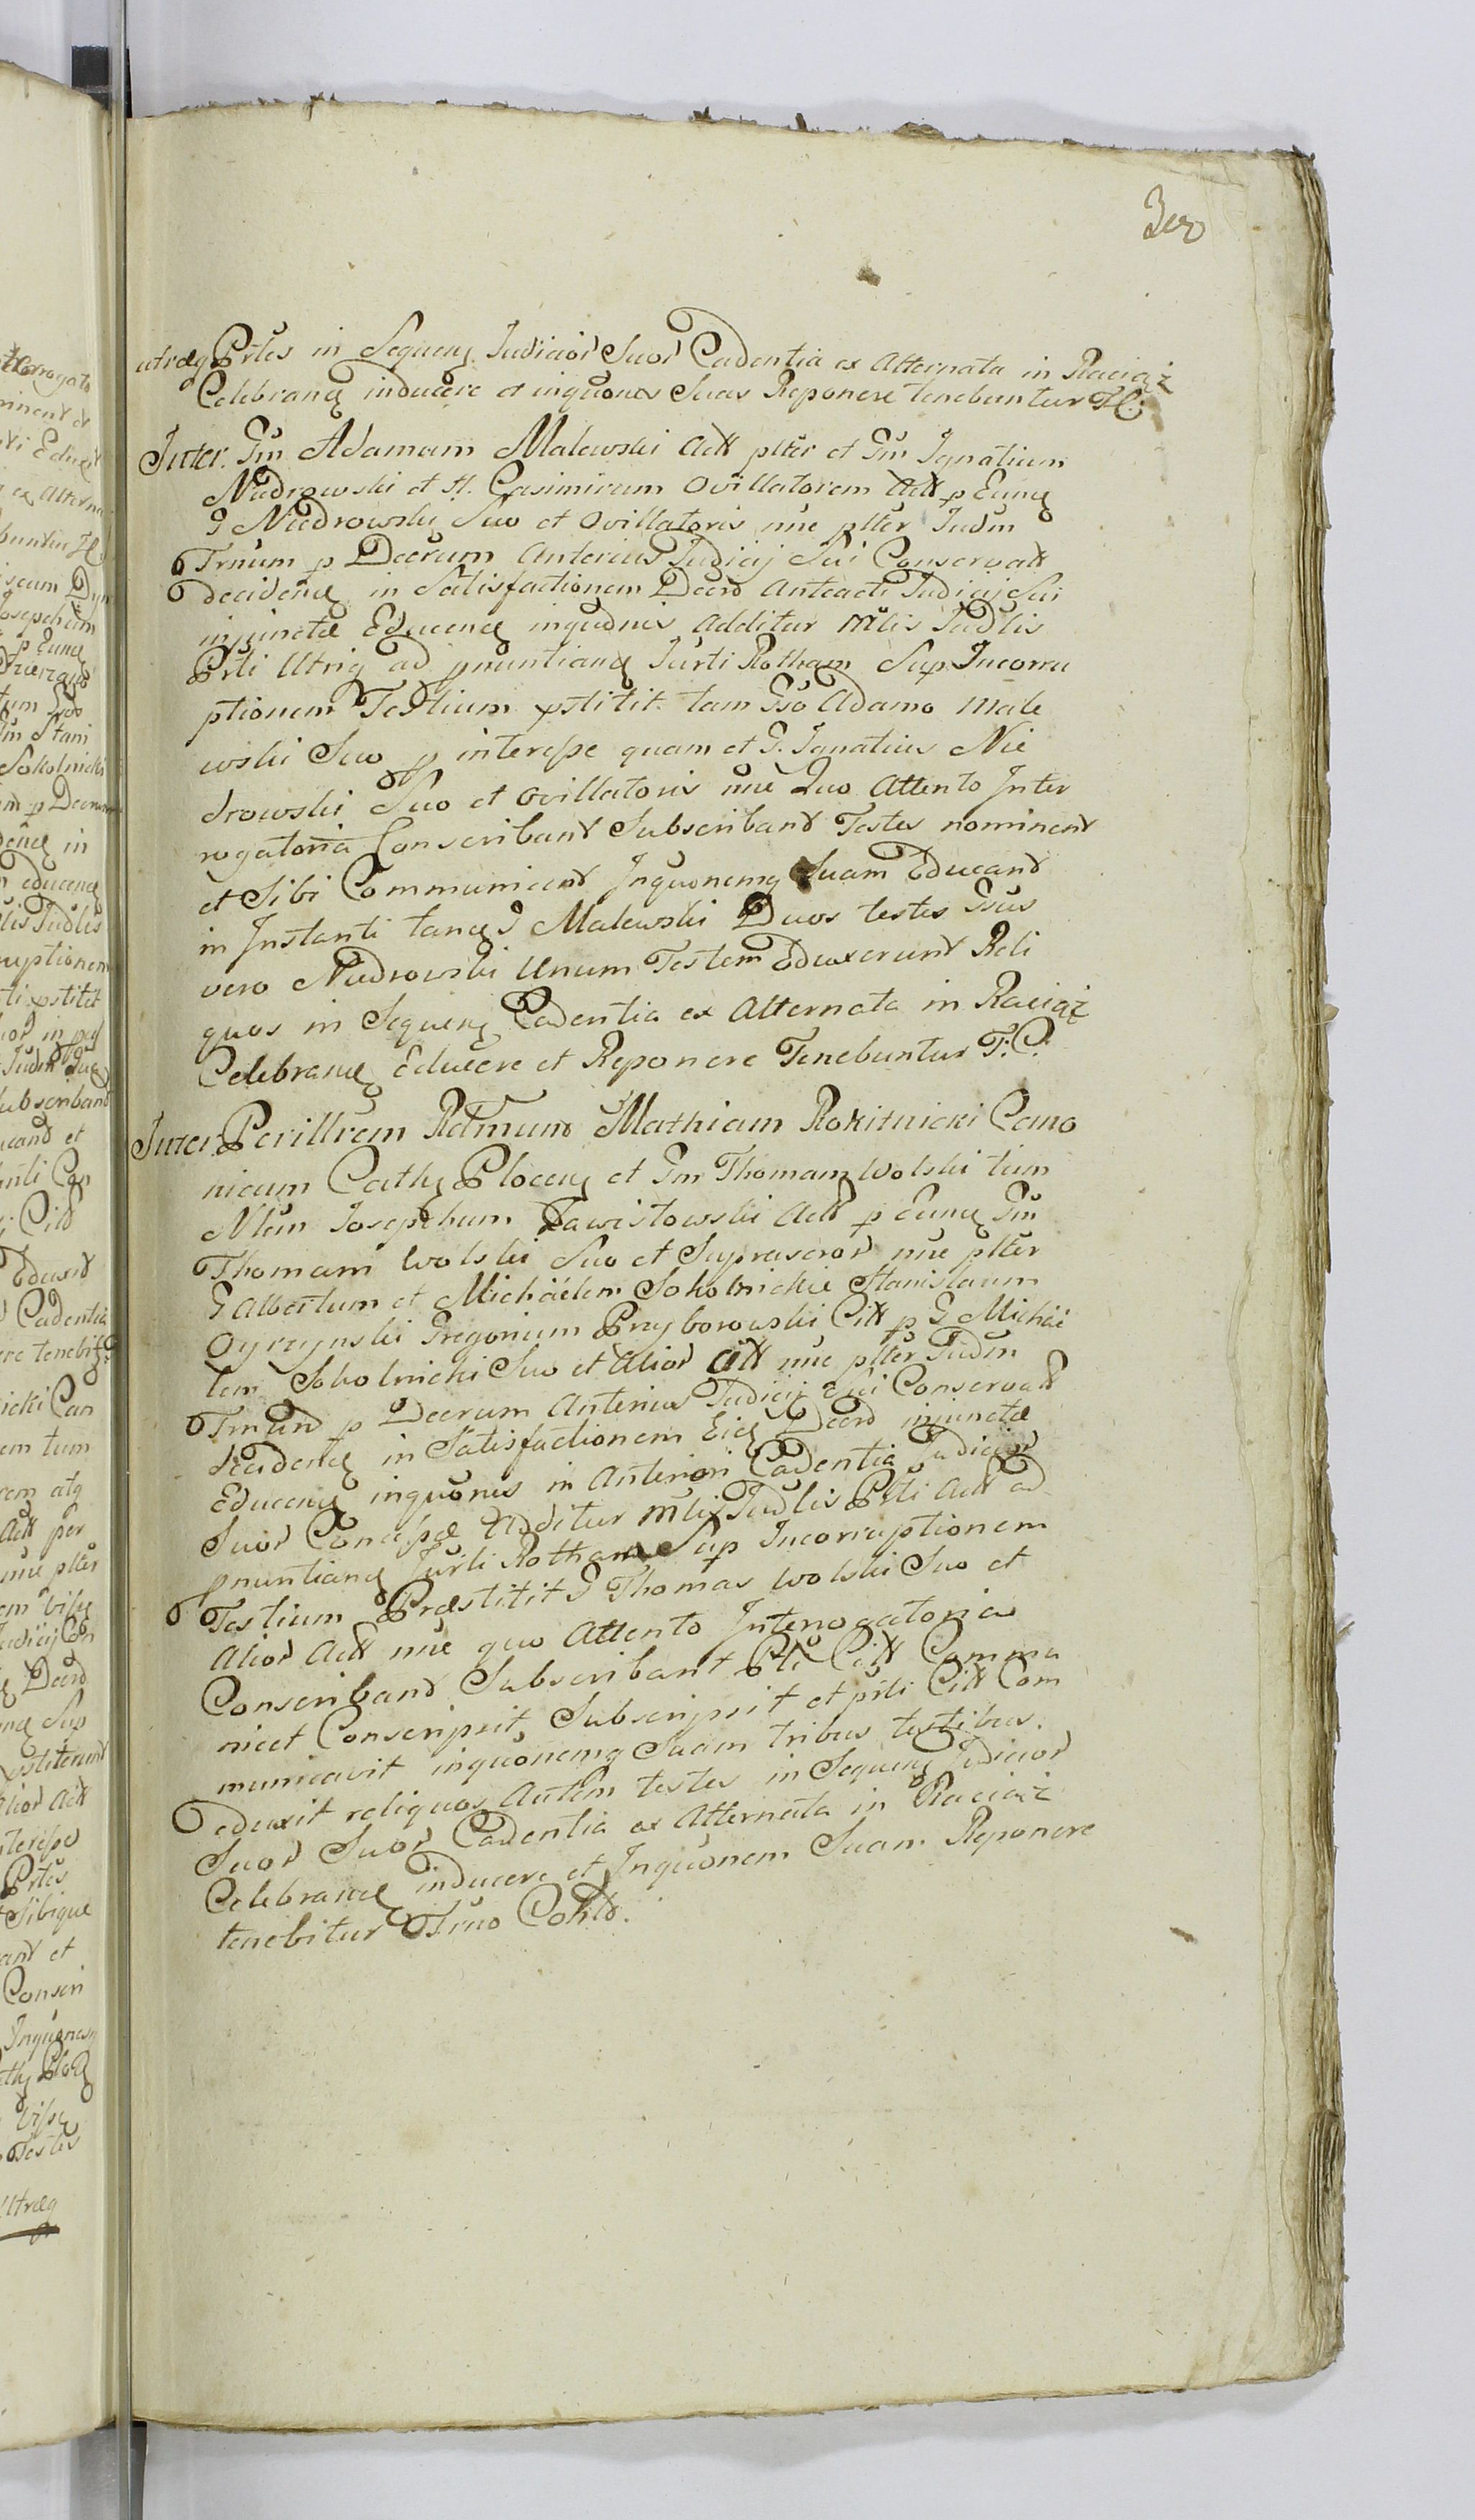 utrāq Prtes in Sequenq Judicior Suor Cadentia ex Alternata in Raciąż
Celebranq inducere et inquones Suas Reponere tenebuntur T.C.
Inter. Gm Adamum Malewski Actt plter et Gm Ignatium
Niedrowski et H. Casimirum Ovillatorem Citt p Eunq
G Niedrowski Suo et Ovillatoris nne plter Judm
Trnum p Decrum Anterius Judicij Sui Conservatt
decidenq in Satisfactionem Decro Anteacti Judicij Sui
injunctæ Educenq inquonis Additur Mlis Judlis
Prti Utriq ad pnuntianq Jurti Rotham Sup Incorru
ptionem Testium pstitit tam Gso Adamo Male
wski Suo p interesse quam et G. Ignatius Nie
drowski Suo et Ovillatoris nne Quo Attento Inter
rogatoria Conscribant Subscribant Testes nominent
et Sibi Communicent Inquonemq Suam Educant
in Instanti tanq G Malewski Duos testes Gsus
vero Niedrowski Unum Testem Eduxerunt Reli
quos in Sequenq Cadentia ex Alternata in Raciąż
Celebranq Educere et Reponere Tenebuntur T.C.
Inter Perillrem Rdmum Mathiam Rokitnicki Cano
nicum Cathq Plocenq et Gm Thomam Wolski tum
Nlem Josephum Zawistowski Actt p Eunq Gm
Thomam Wolski Suo et Suprascror nne plter
G Albertum et Michäelem Sokolnickie Stanislaum
Oyrzynski Gregorium Przyborowski Citt p G Michäe
lem Sokolnicki Suo et Alior Citt nne plter Judm
Trnum p Decrum Anterius Judicij Sui Conservatt
decidenq in Satisfactionem Eiq Decro injunctæ
Educenq inquonis in Anteriori Cadentia Judicior
Suor Concessæ Additur Mlis Judlis Prti Actt ad
pnuntianq Jurti Rotham Sup Incorruptionem
Testium Præstitit G Thomas Wolski Suo et
Alior Actt nne quo Attento Interrogatoria
Conscribant Subscribant Prti Citt Commu
nicet Conscripsit Subscripsit et prti Citt Com
municavit inquonemq Suam tribus testibus.
eduxit reliquos Autem testes in Sequenq Judicior
Suor Suor Cadentia ex Alternata in Raciąż
Celebranq inducere et Inquonem Suam Reponere
tenebitur Trno Contto.